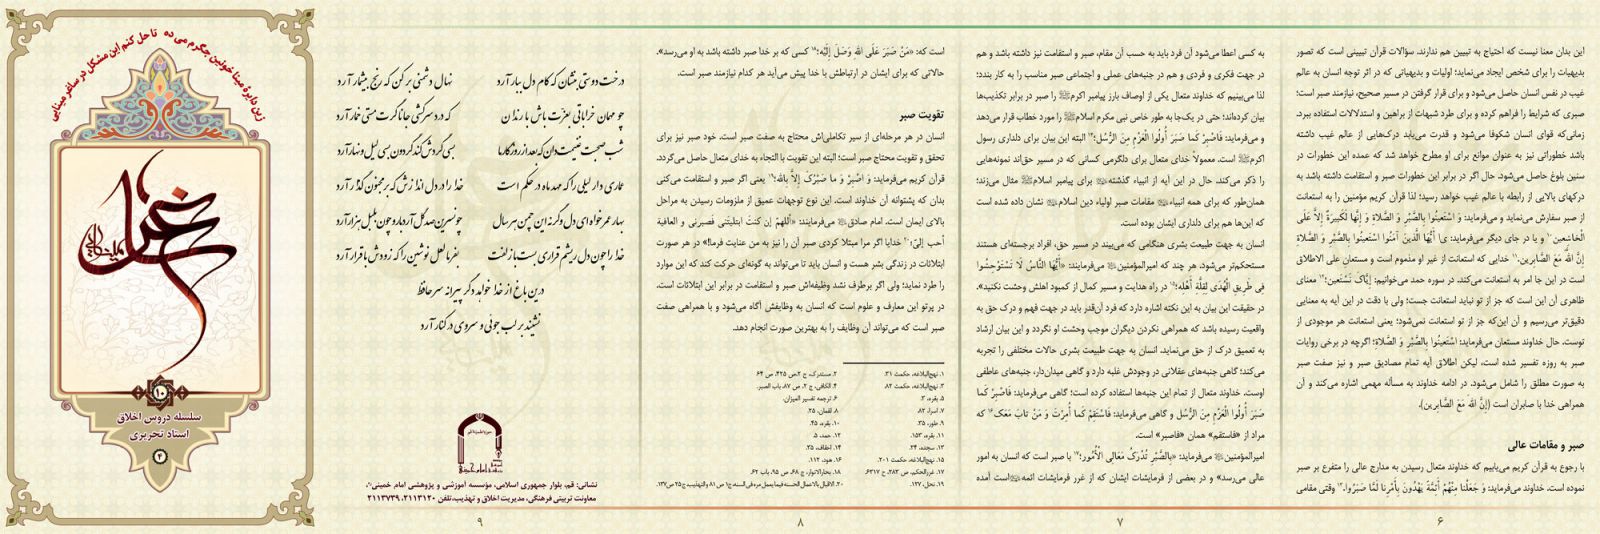 این بدان معنا نیست که احتیاج به تبیین هم ندارند. سؤالات قرآن تبیینی است که تصور
بدیهیات را برای شخص ایجاد می‌نماید؛ اولیات و بدیهیاتی که در اثر توجه انسان به عالم
غیب در نفس انسان حاصل می‌شود و برای قرار گرفتن در مسیر صحیح، نیازمند صبر است؛
صبری که شرایط را فراهم کرده و برای طرد شبهات از براهین و استدلالات استفاده ببرد.
زمانی‌که قوای انسان شکوفا می‌شود و قدرت می‌یابد درک‌هایی از عالم غیب داشته
باشد خطوراتی نیز به عنوان موانع برای او مطرح خواهد شد که عمده این خطورات در
سنین بلوغ حاصل می‌شود. حال اگر در برابر این خطورات صبر و استقامت داشته باشد به
درک‎های بالایی از رابطه با عالم غیب خواهد رسید؛ لذا قرآن کریم مؤمنین را به استعانت
از صبر سفارش می‌نماید و می‌فرماید: وَ اسْتَعینُوا بِالصَّبْرِ وَ الصَّلاةِ وَ إِنَّها لَکَبیرَةٌ إِلاَّ عَلَی
الْخاشِعین و یا در جای دیگر می‌فرماید: یا أَیُّهَا الَّذینَ آمَنُوا اسْتَعینُوا بِالصَّبْرِ وَ الصَّلاةِ
إِنَّ اللهَ مَعَ الصَّابِرین. خدایی که استعانت از غیر او مذموم است و مستعان علی الاطلاق
است در این جا امر به استعانت می‌کند. در سوره حمد می‌خوانیم: إِیَّاکَ نَسْتَعین؛ معنای
ظاهری آن این است که جز از تو نباید استعانت جست؛ ولی با دقت در این آیه به معنایی
دقیق‌تر می‌رسیم و آن این‌که جز از تو استعانت نمی‌شود؛ یعنی استعانت هر موجودی از
توست. حال خداوند مستعان می‌فرماید: اسْتَعینُوا بِالصَّبْرِ وَ الصَّلاةِ؛ اگرچه در برخی روایات
صبر به روزه تفسیر شده است، لیکن اطلاق آیه تمام مصادیق صبر و نیز صفت صبر
به صورت مطلق را شامل می‌شود. در ادامه خداوند به مسأله مهمی اشاره می‌کند و آن
همراهی خدا با صابران است (إِنَّ اللهَ مَعَ الصَّابِرین).
صبر و مقامات عالی
با رجوع به قرآن کریم می‌یابیم که خداوند متعال رسیدن به مدارج عالی را متفرع بر صبر
نموده است. خداوند می‌فرماید: وَ جَعَلْنا مِنْهُمْ أَئِمَّةً یَهْدُونَ بِأَمْرِنا لَمَّا صَبَرُوا. وقتی مقامی
۶
به کسی اعطا می‌شود آن فرد باید به حسب آن مقام، صبر و استقامت نیز داشته باشد و هم
در جهت فکری و فردی و هم در جنبه‌های عملی و اجتماعی صبر مناسب را به کار بندد؛
لذا می‌بینیم که خداوند متعال یکی از اوصاف بارز پیامبر اکرم ﷺ را صبر در برابر تکذیب‌ها
بیان کرده‌اند؛ حتی در یک‌جا به طور خاص نبی مکرم اسلام ﷺ را مورد خطاب قرار می‌دهد
و می‌فرماید: فَاصْبِرْ کَما صَبَرَ أُولُوا الْعَزْمِ مِنَ الرُّسُلِ؛ البته این بیان برای دلداری رسول
اکرم ﷺ است. معمولاً خدای متعال برای دلگرمی کسانی که در مسیر حق‌اند نمونه‌هایی
را ذکر می‌کند، حال در این آیه از انبیاء گذشته برای پیامبر اسلام ﷺ مثال می‌زند؛
همان‌طور که برای همه انبیاء مقامات صبر اولیاء دین اسلام نشان داده شده است
که این‌ها هم برای دلداری ایشان بوده است.
انسان به جهت طبیعت بشری هنگامی که می‌بیند در مسیر حق، افراد برجسته‌ای هستند
مستحکم‌تر می‌شود، هر چند که امیرالمؤمنین می‌فرمایند: «أَیُّهَا النَّاسُ لَا تَسْتَوْحِشُوا
فِی طَرِیقِ الْهُدَی لِقِلَّةِ أَهْلِه»؛ در راه هدایت و مسیر کمال از کمبود اهلش وحشت نکنید».
در حقیقت این بیان به این نکته اشاره دارد که فرد آن‌قدر باید در جهت فهم و درک حق به
واقعیت رسیده باشد که همراهی نکردن دیگران موجب وحشت او نگردد و این بیان ارشاد
به تعمیق درک از حق می‌نماید. انسان به جهت طبیعت بشری حالات مختلفی را تجربه
می‌کند؛ گاهی جنبه‌های عقلانی در وجودش غلبه دارد و گاهی میدان‌دار، جنبه‌های عاطفی
اوست. خداوند متعال از تمام این جنبه‌ها استفاده کرده است؛ گاهی می‌فرماید: فَاصْبِرْ کَما
صَبَرَ أُولُوا الْعَزْمِ مِنَ الرُّسُلِ و گاهی می‌فرماید: فَاسْتَقِمْ کَما أُمِرْتَ وَ مَنْ تابَ مَعَکَ که
مراد از «فاستقم» همان «فاصبر» است.
امیرالمؤمنین می‌فرماید: «بِالصَّبْرِ تُدْرَکُ مَعَالِی الْأُمُور؛ با صبر است که انسان به امور
عالی می‌رسد» و در بعضی از فرمایشات ایشان که از غرر فرمایشات ائمه است آمده
۷
است که: «مَنْ صَبَرَ عَلَی اللهِ وَصَلَ إِلَیْه؛ کسی که بر خدا صبر داشته باشد به او می‌رسد».
حالاتی که برای ایشان در ارتباطش با خدا پیش می‌آید هر کدام نیازمند صبر است.
تقویت صبر
انسان در هر مرحله‌ای از سیر تکاملی‌اش محتاج به صفت صبر است. خود صبر نیز برای
تحقق و تقویت محتاج صبر است؛ البته این تقویت با التجاء به خدای متعال حاصل می‌گردد.
قرآن کریم می‌فرماید: وَ اصْبِرْ وَ ما صَبْرُکَ إِلاَّ بِالله؛ یعنی اگر صبر و استقامت می‌کنی
بدان که پشتوانه آن خداوند است. این نوع توجهات عمیق از ملزومات رسیدن به مراحل
بالای ایمان است. امام صادق می‌فرمایند: «أللهمّ إن کنتَ ابتلیتَنی فصبرنی و العافیة
أحب إلیّ؛ خدایا اگر مرا مبتلا کردی صبر آن را نیز به من عنایت فرما!» در هر صورت
ابتلائات در زندگی بشر هست و انسان باید تا می‌تواند به گونه‌ای حرکت کند که این موارد
را طرد نماید؛ ولی اگر برطرف نشد وظیفه‌اش صبر و استقامت در برابر این ابتلائات است.
در پرتو این معارف و علوم است که انسان به وظایفش آگاه می‌شود و با همراهی صفت
صبر است که می‌تواند آن وظایف را به بهترین صورت انجام دهد.
۱. نهج‌البلاغه، حکمت ۳۱. ۲. مستدرک، ج ۲،ص ۴۲۵، ص ۶۴
۳. نهج‌البلاغه، حکمت ۸۲ ۴. الکافی، ج ۲، ص ۸۷، باب الصبر.
۵. بقره، ۳. ۶. ترجمه تفسیر المیزان.
۷. اسرا، ۸۲ ۸. لقمان، ۲۵.
۹. طور، ۳۵. ۱۰. بقره، ۴۵.
۱۱. بقره، ۱۵۳. ۱۲. حمد، ۵.
۱۳. سجده، ۲۴. ۱۴. احقاف، ۳۵.
۱۵. نهج‌البلاغه، حکمت ۲۰۱. ۱۶. هود، ۱۱۲.
۱۷. غررالحکم، ص ۲۸۳، ح ۶۳۱۷. ۱۸. بحارالانوار، ج ۶۸، ص ۹۵، باب ۶۲.
۱۹. نحل، ۱۲۷. ۲۰. الاقبال بالاعمال الحسنه فیما یعمل مره فی السنه، ج۱ ص ۸۱ والتهذیب، ج۲۵ ص۱۳۷.
۸
درخت دوستی بنشان که کام دل به بار آرد نهال دشمنی برکن که رنج بی‌شمار آرد
چو مهمان خراباتی بعزت باش با رندان که درد سر کشی جانا گرت مستی خمار آرد
شب صحبت غنیمت دان که بعد از روزگار ما بسی گردش کند گردون بسی لیل و نهار آرد
عماری دار لیلی را که مهد ماه در حکم است خدا را در دل اندازش که بر مجنون گذار آرد
بهار عمر خواه ای دل وگرنه این چمن هر سال چو نسرین صد گل آرد بار و چون بلبل هزار آرد
خدا را چون دل ریشم قراری بست با زلفت بفرما لعل نوشین را که زودش با قرار آرد
درین باغ از خدا خواهد دگر پیرانه سر حافظ
نشیند بر لب جوئی و سروی در کنار آرد
نشانی: قم، بلوار جمهوری اسلامی، مؤسسه آموزشی و پژوهشی امام خمینی
معاونت تربیتی فرهنگی، مدیریت اخلاق و تهذیب،تلفن ۲۱۱۳۱۲۰، ۲۱۱۳۷۳۹
۹
زین دایرهٔ مینا خونین جگرم می ده تا حل کنم این مشکل در ساغر مینایی
۱۰
سلسله دروس اخلاق
استاد تحریری
۴